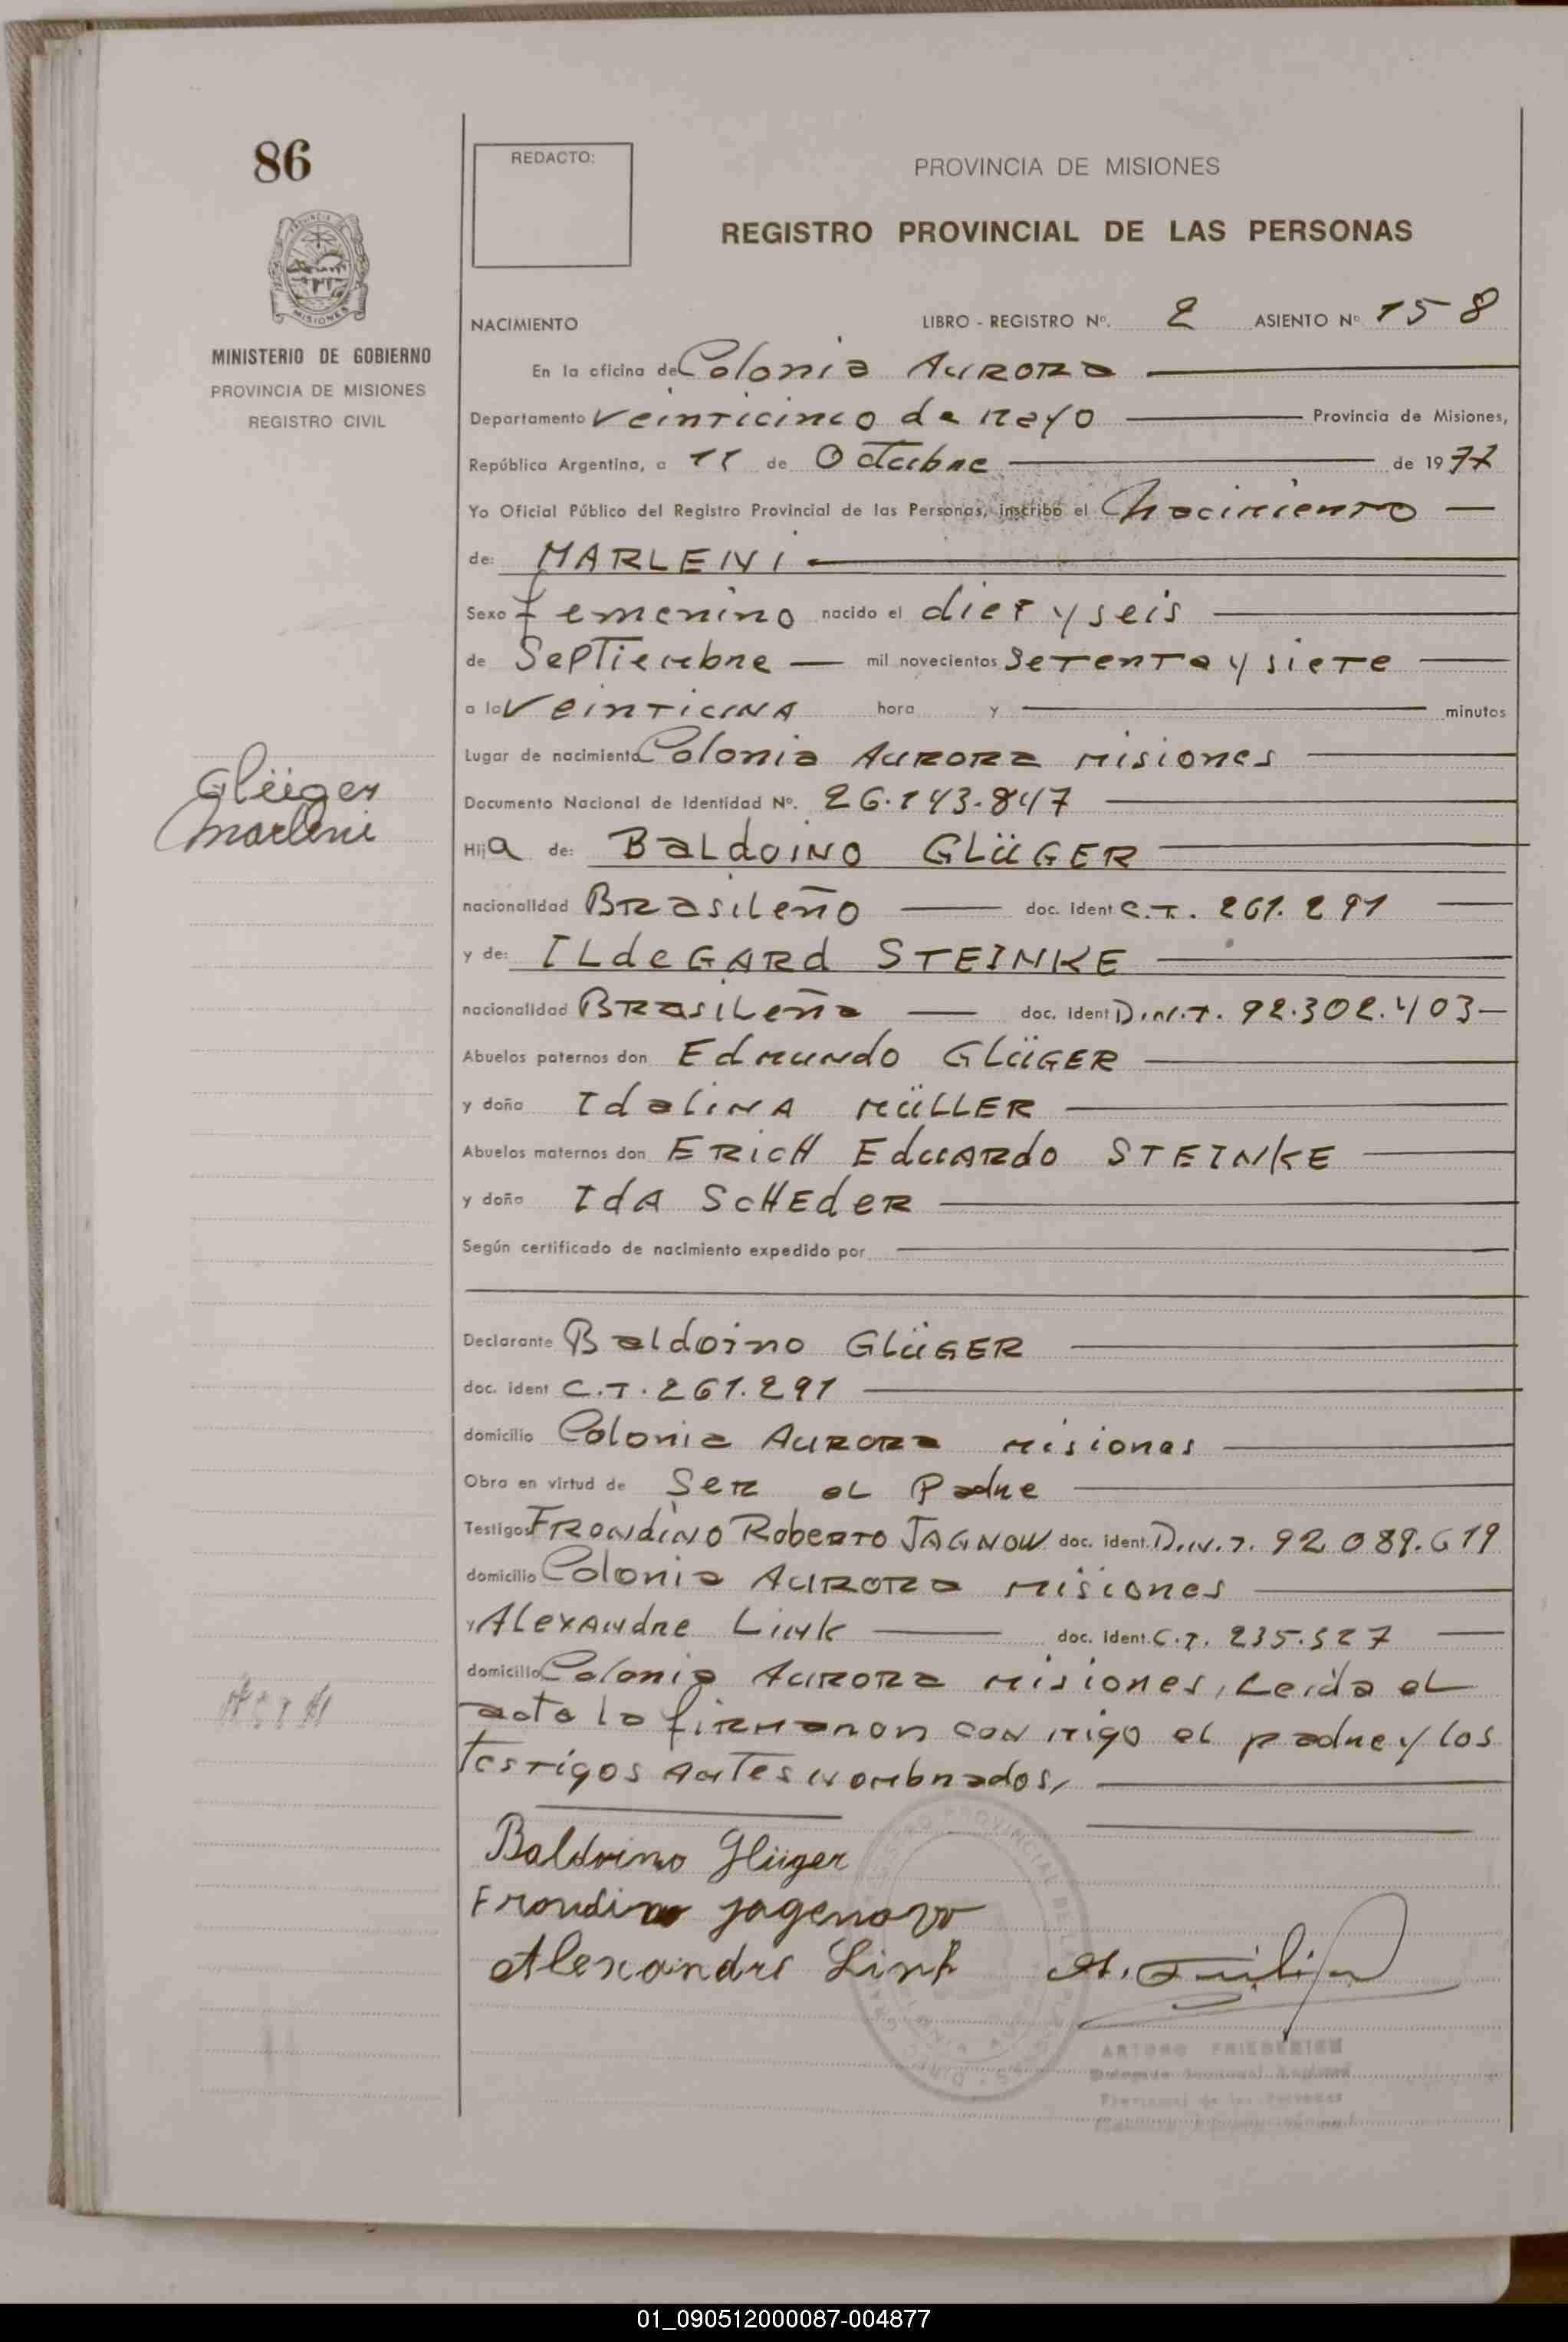 86
REDACTO:
PROVINCIA DE MISIONES
REGISTRO PROVINCIAL DE LAS PERSONAS
MISIONES
MINISTERIO DE GOBIERNO
PROVINCIA DE MISIONES
REGISTRO CIVIL
NACIMIENTO LIBRO - REGISTRO Nº. 2 ASIENTO Nº 158
En la oficina de Colonia AURORA
Departamento Veinticinco de Mayo Provincia de Misiones,
República Argentina, a 11 de Octubre de 1977
Yo Oficial Público del Registro Provincial de las Personas, inscribo el Nacimiento
de: MARLENI
Sexo femenino nacido el diez y seis
de Septiembre mil novecientos Setenta y siete
a la Veintiuna hora y minutos
Lugar de nacimiento Colonia AURORA Misiones
Documento Nacional de Identidad Nº. 26.143.847
Hija de: BALdOINO GLÜGER
nacionalidad BRasileño doc. ident C.I. 261.291
y de: ILdeGARd STEINKE
nacionalidad BRasileña doc. ident D.N.I. 92.302.403
Abuelos paternos don Edmundo GLÜGER
y doña IdaliNA MÜLLER
Abuelos maternos don ERicH EduARdo STEINKE
y doña IdA ScHEdeR
Según certificado de nacimiento expedido por
Declarante Baldoino GLÜGER
doc. ident C.I. 261.291
domicilio Colonia AURORA Misiones
Obra en virtud de Ser el Padre
Testigos FRONdiNO Roberto JAGNOW doc. ident. D.N.I. 92.089.619
domicilio Colonia AURORA Misiones
y Alexandre Link doc. ident. C.I. 235.527
domicilio Colonia AURORA Misiones, Leída el
acta la firmaron con migo el padre y los
testigos antes nombrados,
Glüger
Marleni
Baldoino Glüger
Frondino Jagenow
Alexandre Link
ARTURO FRIEDERICH
01_090512000087-004877